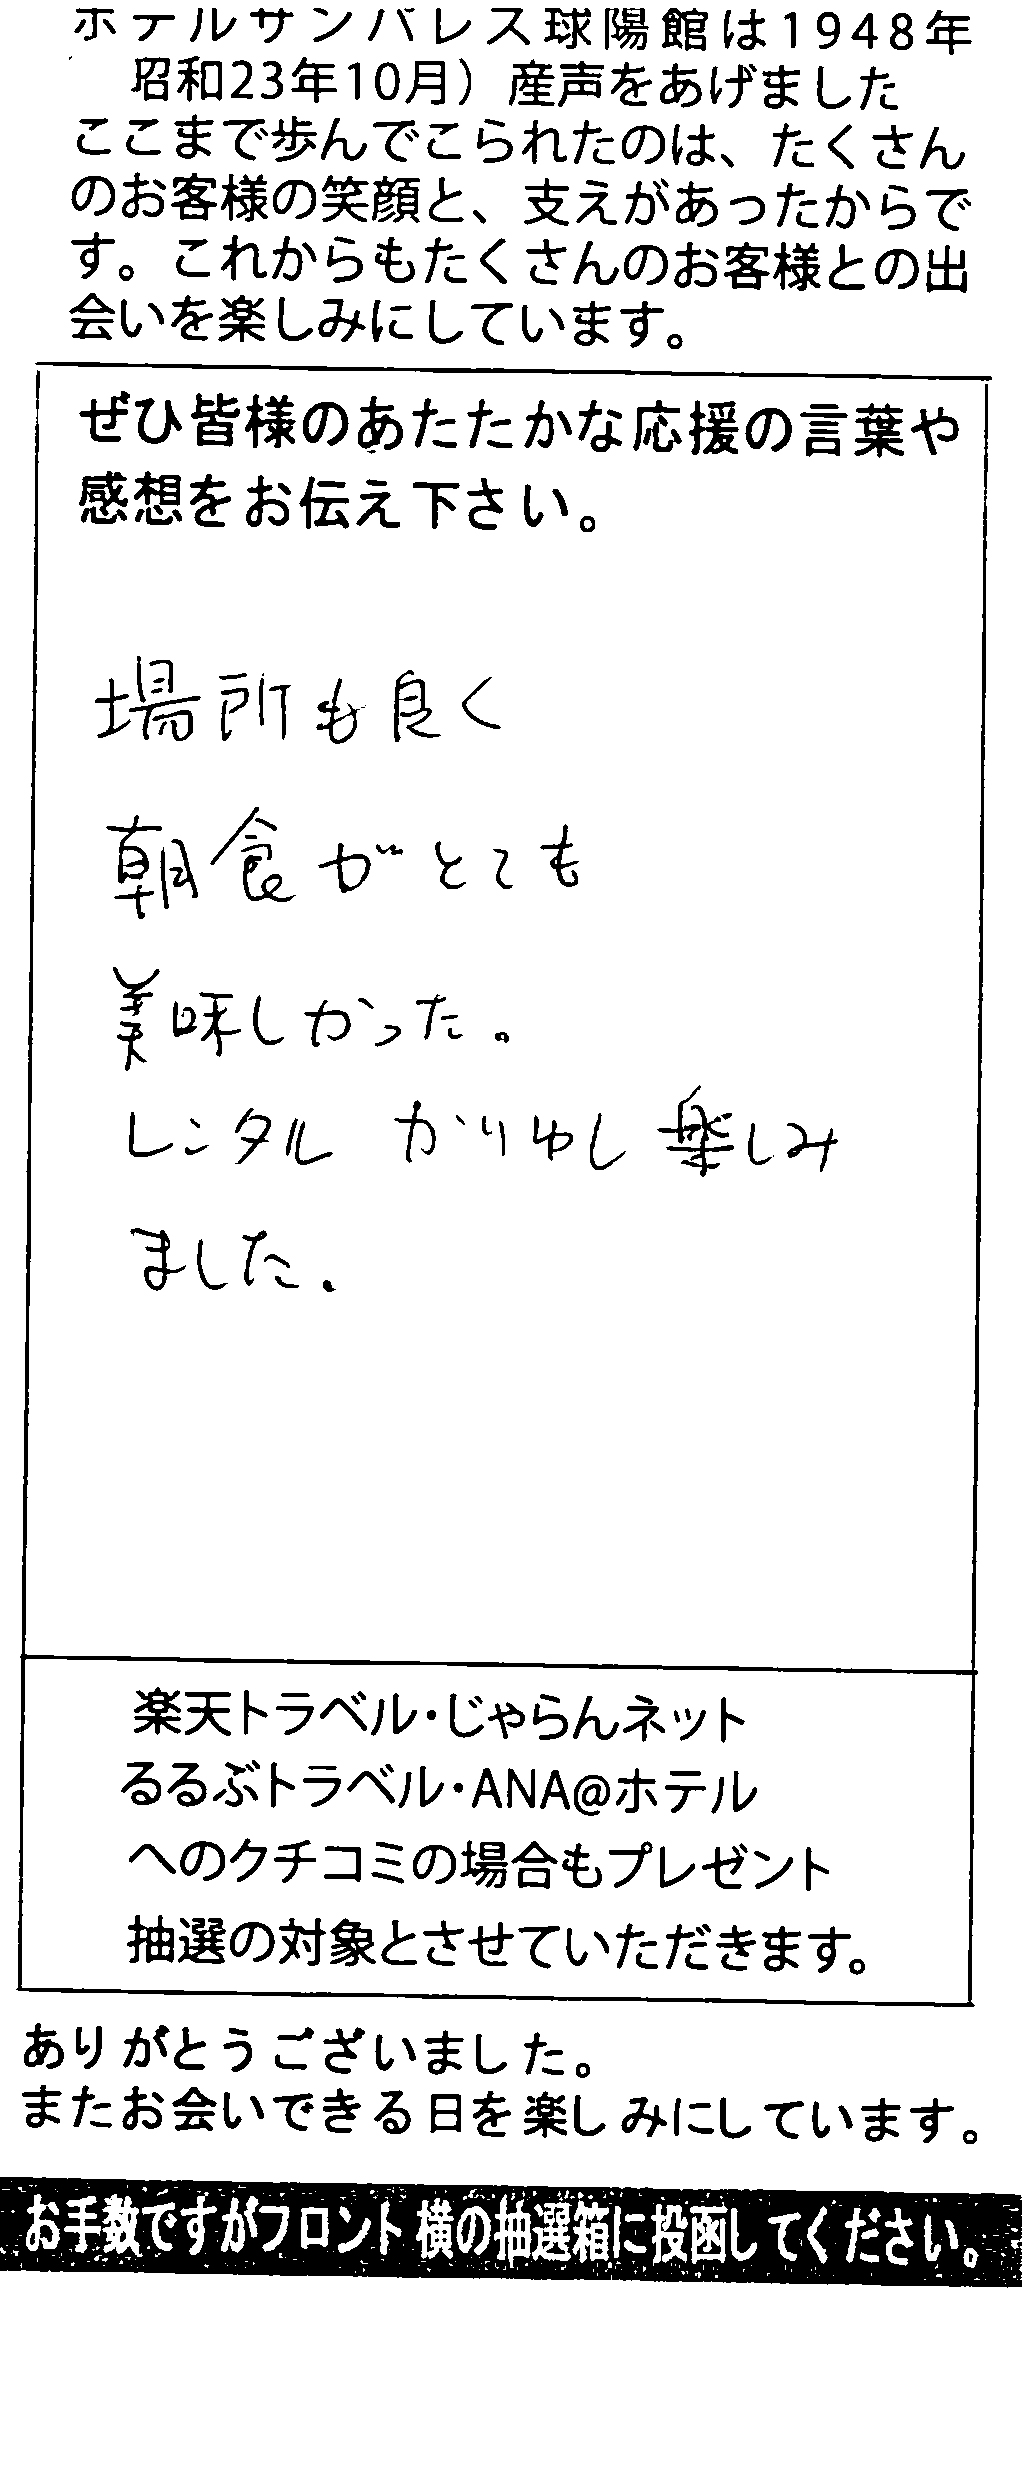 ホテルサンバレス球陽館は1948年
昭和23年10月）産声をあげました
ここまで歩んでこられたのは、たくさん
のお客様の笑顔と、支えがあったからで
す。これからもたくさんのお客様との出
会いを楽しみにしています。
ぜひ皆様のあたたかな応援の言葉や
感想をお伝え下さい。
場所も良く
朝食がとても
美味しかった。
レンタル かりゆし楽しみ
ました.
楽天トラベル・じゃらんネット
るるぶトラベル・ANA@ホテル
へのクチコミの場合もプレゼント
抽選の対象とさせていただきます。
ありがとうございました。
またお会いできる日を楽しみにしています。
お手数ですがフロント横の抽選箱に投函してください。